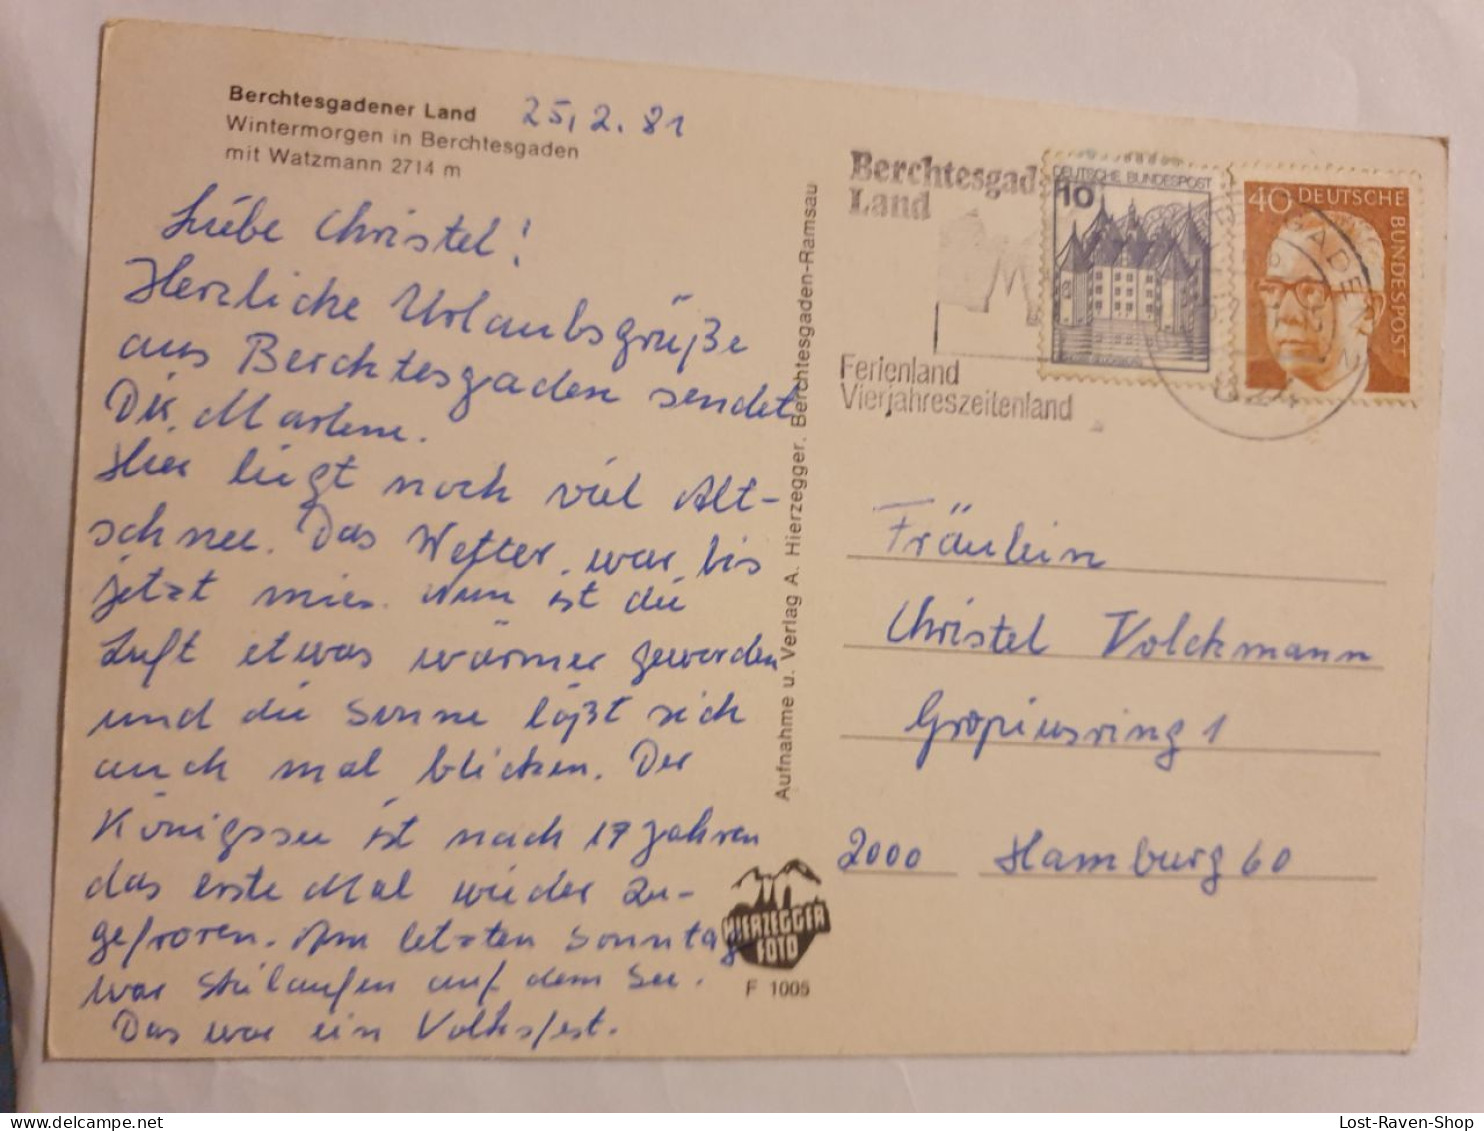 Berchtesgadener Land
Wintermorgen in Berchtesgaden
mit Watzmann 2714 m
25.2.81
Liebe Christel!
Herzliche Urlaubsgrüße
aus Berchtesgaden sendet
Dir Marlene.
Hier liegt noch viel Alt-
schnee. Das Wetter war bis
jetzt mies. Nun ist die
Luft etwas wärmer geworden
und die Sonne läßt sich
auch mal blicken. Der
Königssee ist nach 17 Jahren
das erste Mal wieder zu-
gefroren. Am letzten Sonntag
war Skilaufen auf dem See.
Das war ein Volksfest.
Aufnahme u. Verlag A. Hierzegger, Berchtesgaden-Ramsau
HIERZEGGER
FOTO
F 1005
Berchtesgad
Land
Ferienland
Vierjahreszeitenland
DEUTSCHE BUNDESPOST
10
40 DEUTSCHE
BUNDESPOST
Fräulein
Christel Volckmann
Gropiusring 1
2000 Hamburg 60
Lost-Raven-Shop